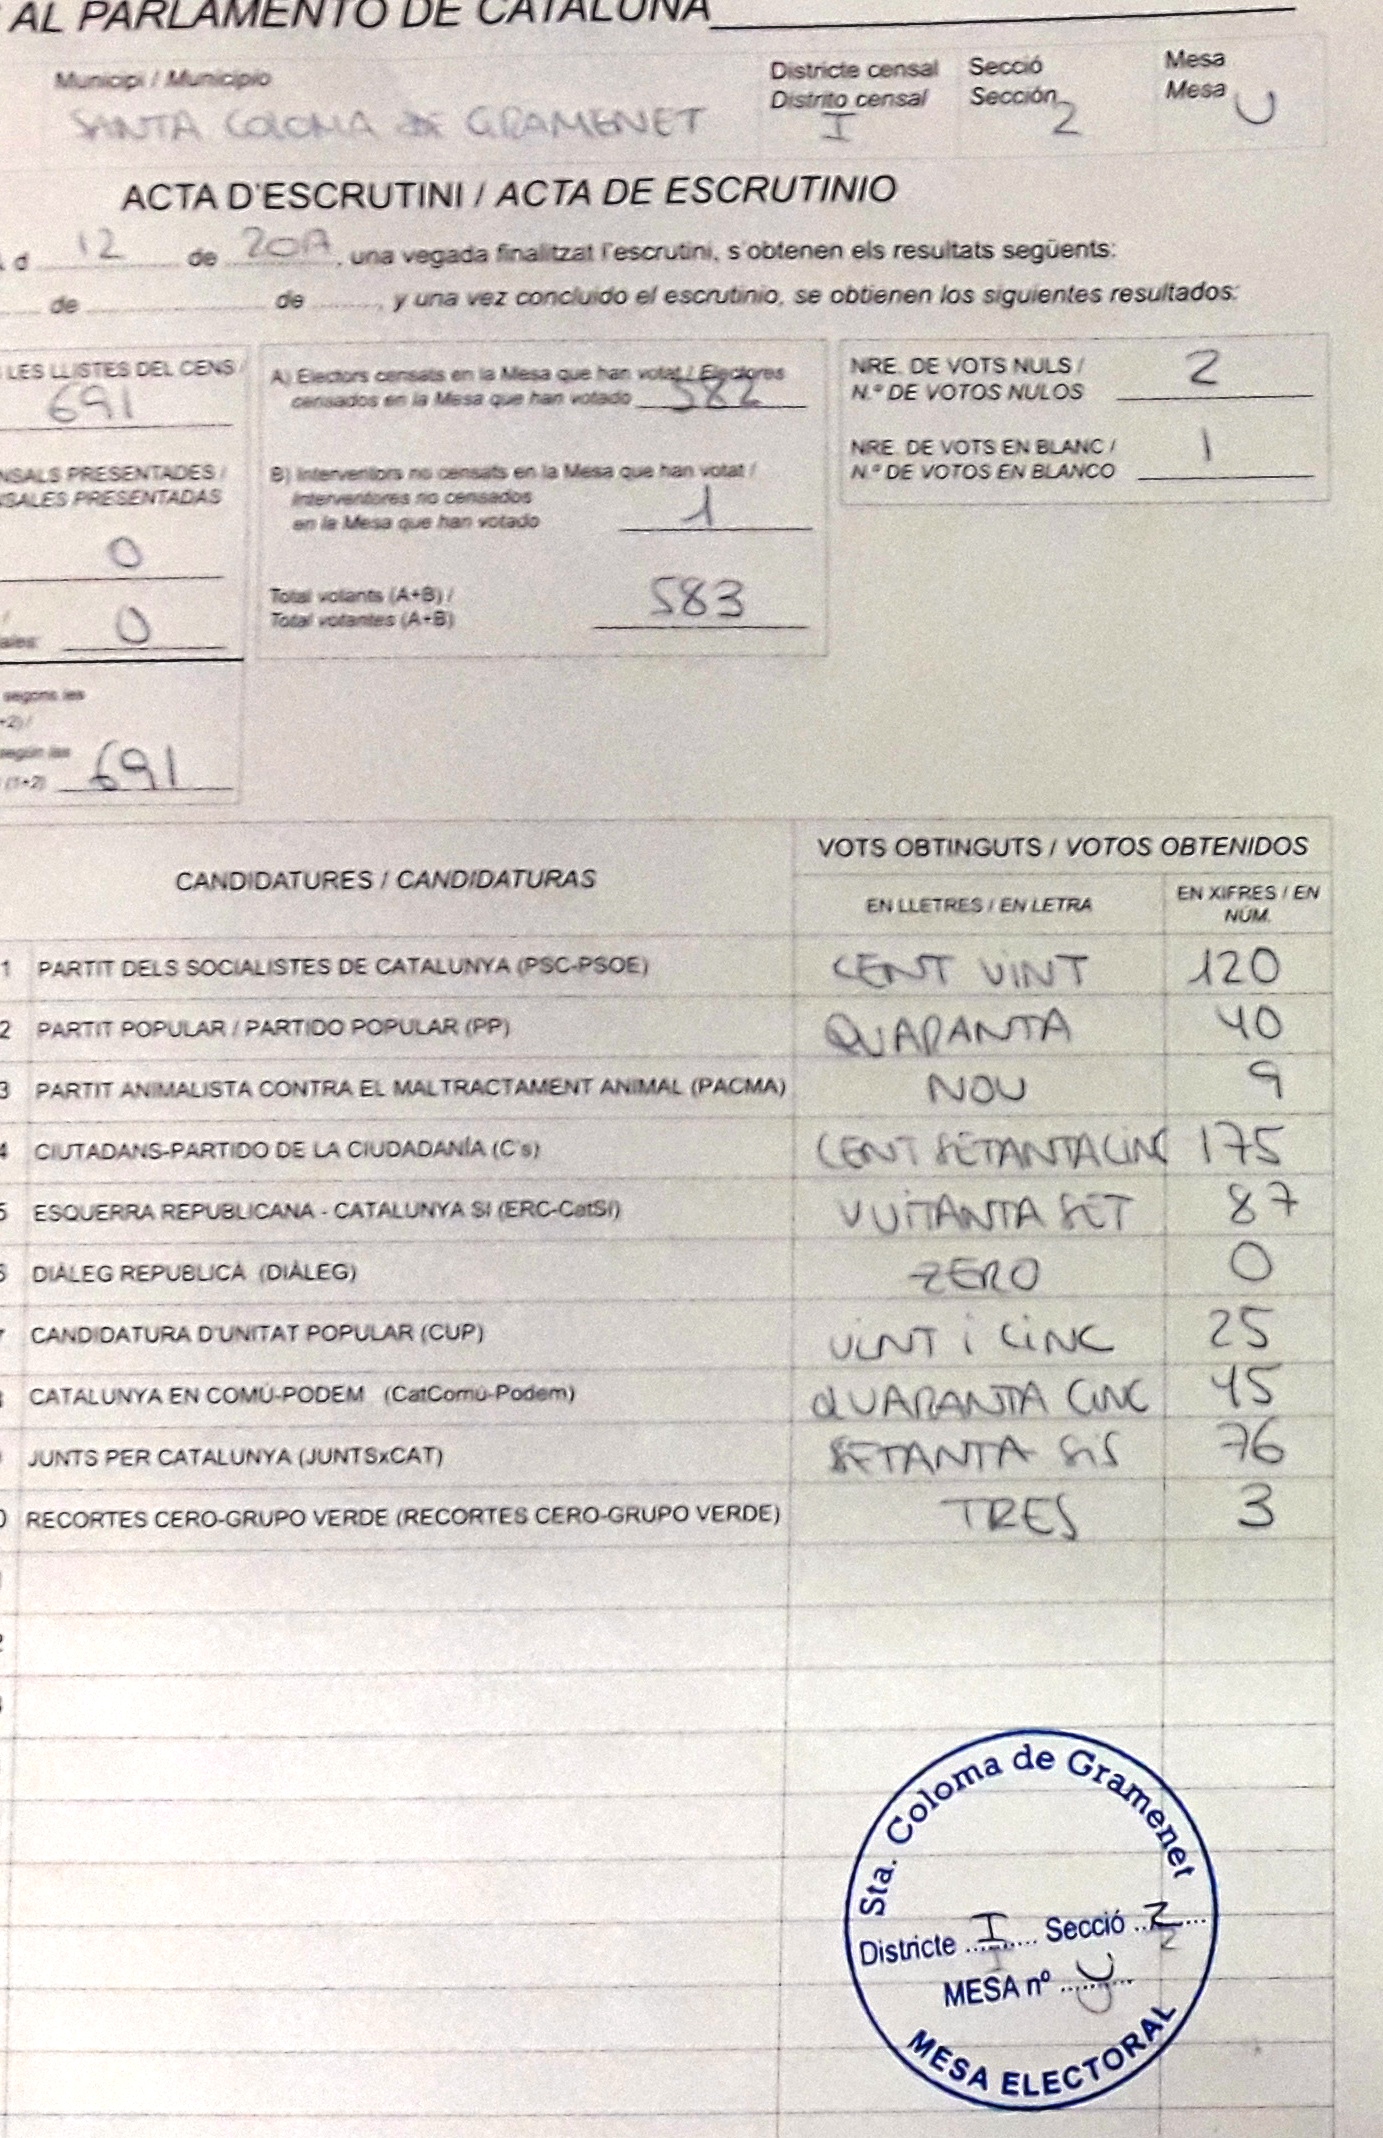 AL PARLAMENTO DE CATALUÑA
Municipi / Municipio
SANTA COLOMA DE GRAMENET
Districte censal
Distrito censal
I
Secció
Sección
2
Mesa
Mesa
U
ACTA D'ESCRUTINI / ACTA DE ESCRUTINIO
d 12 de 2017, una vegada finalitzat l'escrutini, s'obtenen els resultats següents:
de de , y una vez concluido el escrutinio, se obtienen los siguientes resultados:
LES LLISTES DEL CENS /
691
NSALS PRESENTADES /
SALES PRESENTADAS
0
/
ales: 0
segons les
+2) /
según las
(1+2) 691
A) Electors censats en la Mesa que han votat / Electores
censados en la Mesa que han votado 582
B) Interventors no censats en la Mesa que han votat /
Interventores no censados
en la Mesa que han votado 1
Total votants (A+B) /
Total votantes (A+B) 583
NRE. DE VOTS NULS /
N.º DE VOTOS NULOS 2
NRE. DE VOTS EN BLANC /
N.º DE VOTOS EN BLANCO 1
CANDIDATURES / CANDIDATURAS
VOTS OBTINGUTS / VOTOS OBTENIDOS
EN LLETRES / EN LETRA
EN XIFRES / EN
NÚM.
1 PARTIT DELS SOCIALISTES DE CATALUNYA (PSC-PSOE) CENT VINT 120
2 PARTIT POPULAR / PARTIDO POPULAR (PP) QUARANTA 40
3 PARTIT ANIMALISTA CONTRA EL MALTRACTAMENT ANIMAL (PACMA) NOU 9
4 CIUTADANS-PARTIDO DE LA CIUDADANÍA (C's) CENT SETANTA CINC 175
5 ESQUERRA REPUBLICANA - CATALUNYA SÍ (ERC-CatSí) VUITANTA SET 87
6 DIÀLEG REPUBLICÀ (DIÀLEG) ZERO 0
7 CANDIDATURA D'UNITAT POPULAR (CUP) VINT i CINC 25
8 CATALUNYA EN COMÚ-PODEM (CatComú-Podem) QUARANTA CINC 45
9 JUNTS PER CATALUNYA (JUNTSxCAT) SETANTA SIS 76
0 RECORTES CERO-GRUPO VERDE (RECORTES CERO-GRUPO VERDE) TRES 3
2
3
Sta. Coloma de Gramenet
Districte I Secció 2
MESA nº U
MESA ELECTORAL